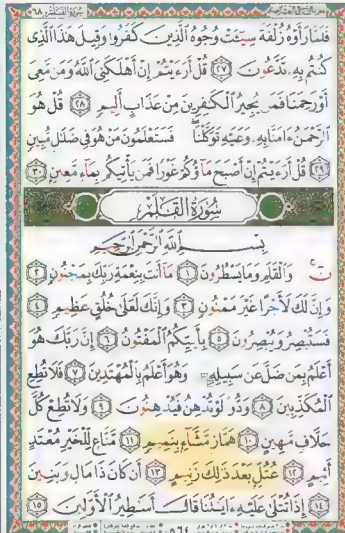 سورة القلم ٦٨
فَلَمَّا رَأَوْهُ زُلْفَةً سِيٓـَٔتْ وُجُوهُ ٱلَّذِينَ كَفَرُوا۟ وَقِيلَ هَٰذَا ٱلَّذِى
كُنتُم بِهِۦ تَدَّعُونَ ٢٧ قُلْ أَرَءَيْتُمْ إِنْ أَهْلَكَنِىَ ٱللَّهُ وَمَن مَّعِىَ
أَوْ رَحِمَنَا فَمَن يُجِيرُ ٱلْكَٰفِرِينَ مِنْ عَذَابٍ أَلِيمٍ ٢٨ قُلْ هُوَ
ٱلرَّحْمَٰنُ ءَامَنَّا بِهِۦ وَعَلَيْهِ تَوَكَّلْنَا فَسَتَعْلَمُونَ مَنْ هُوَ فِى ضَلَٰلٍ مُّبِينٍ
٢٩ قُلْ أَرَءَيْتُمْ إِنْ أَصْبَحَ مَآؤُكُمْ غَوْرًا فَمَن يَأْتِيكُم بِمَآءٍ مَّعِينٍۭ ٣٠
سُورَةُ القَلَمِ
بِسْمِ ٱللَّهِ ٱلرَّحْمَٰنِ ٱلرَّحِيمِ
نٓ وَٱلْقَلَمِ وَمَا يَسْطُرُونَ ١ مَآ أَنتَ بِنِعْمَةِ رَبِّكَ بِمَجْنُونٍ ٢
وَإِنَّ لَكَ لَأَجْرًا غَيْرَ مَمْنُونٍ ٣ وَإِنَّكَ لَعَلَىٰ خُلُقٍ عَظِيمٍ ٤
فَسَتُبْصِرُ وَيُبْصِرُونَ ٥ بِأَييِّكُمُ ٱلْمَفْتُونُ ٦ إِنَّ رَبَّكَ هُوَ
أَعْلَمُ بِمَن ضَلَّ عَن سَبِيلِهِۦ وَهُوَ أَعْلَمُ بِٱلْمُهْتَدِينَ ٧ فَلَا تُطِعِ
ٱلْمُكَذِّبِينَ ٨ وَدُّوا۟ لَوْ تُدْهِنُ فَيُدْهِنُونَ ٩ وَلَا تُطِعْ كُلَّ
حَلَّافٍ مَّهِينٍ ١٠ هَمَّازٍ مَّشَّآءٍۭ بِنَمِيمٍ ١١ مَّنَّاعٍ لِّلْخَيْرِ مُعْتَدٍ
أَثِيمٍ ١٢ عُتُلٍّۭ بَعْدَ ذَٰلِكَ زَنِيمٍ ١٣ أَن كَانَ ذَا مَالٍ وَبَنِينَ
١٤ إِذَا تُتْلَىٰ عَلَيْهِ ءَايَٰتُنَا قَالَ أَسَٰطِيرُ ٱلْأَوَّلِينَ ١٥
٥٦٤